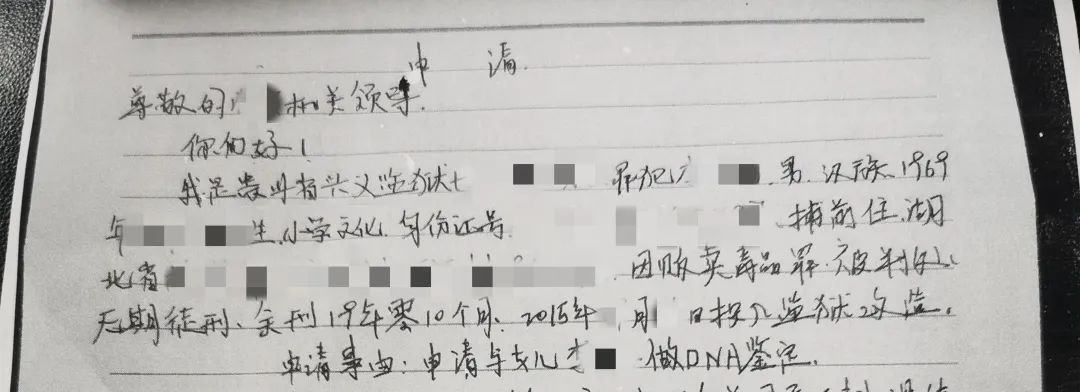 申 请
尊敬的 相关领导.
你们好！
我是贵州省兴义监狱 罪犯 男.汉族.1969
年 生.小学文化.身份证号 捕前住湖
北省 因贩卖毒品罪.被判处
无期徒刑、余刑19年零10个月. 2015年 月 日投入监狱 监.
申请事由：申请与女儿 做DNA鉴定.